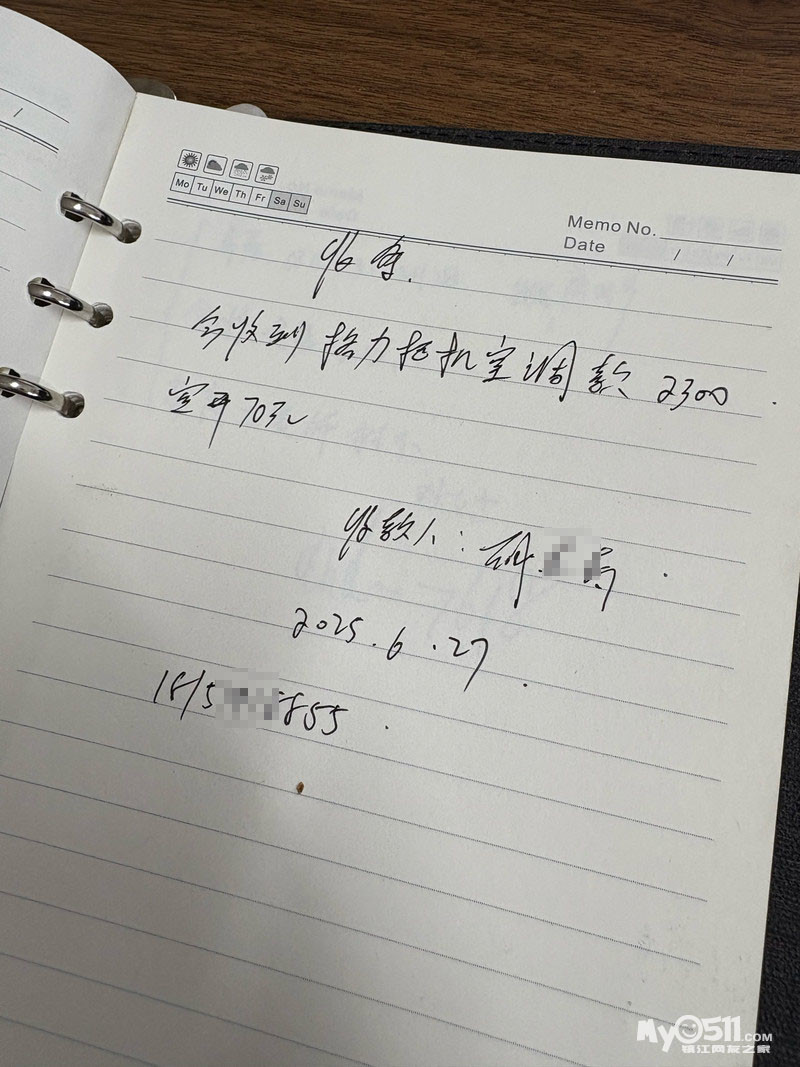 Mo Tu We Th Fr Sa Su
Memo No.
Date / /
收条.
今收到格力柜机空调款 2300.
空开70元
收款人:
2025.6.27.
1815 8855.
My0511.COM
镇江网友之家